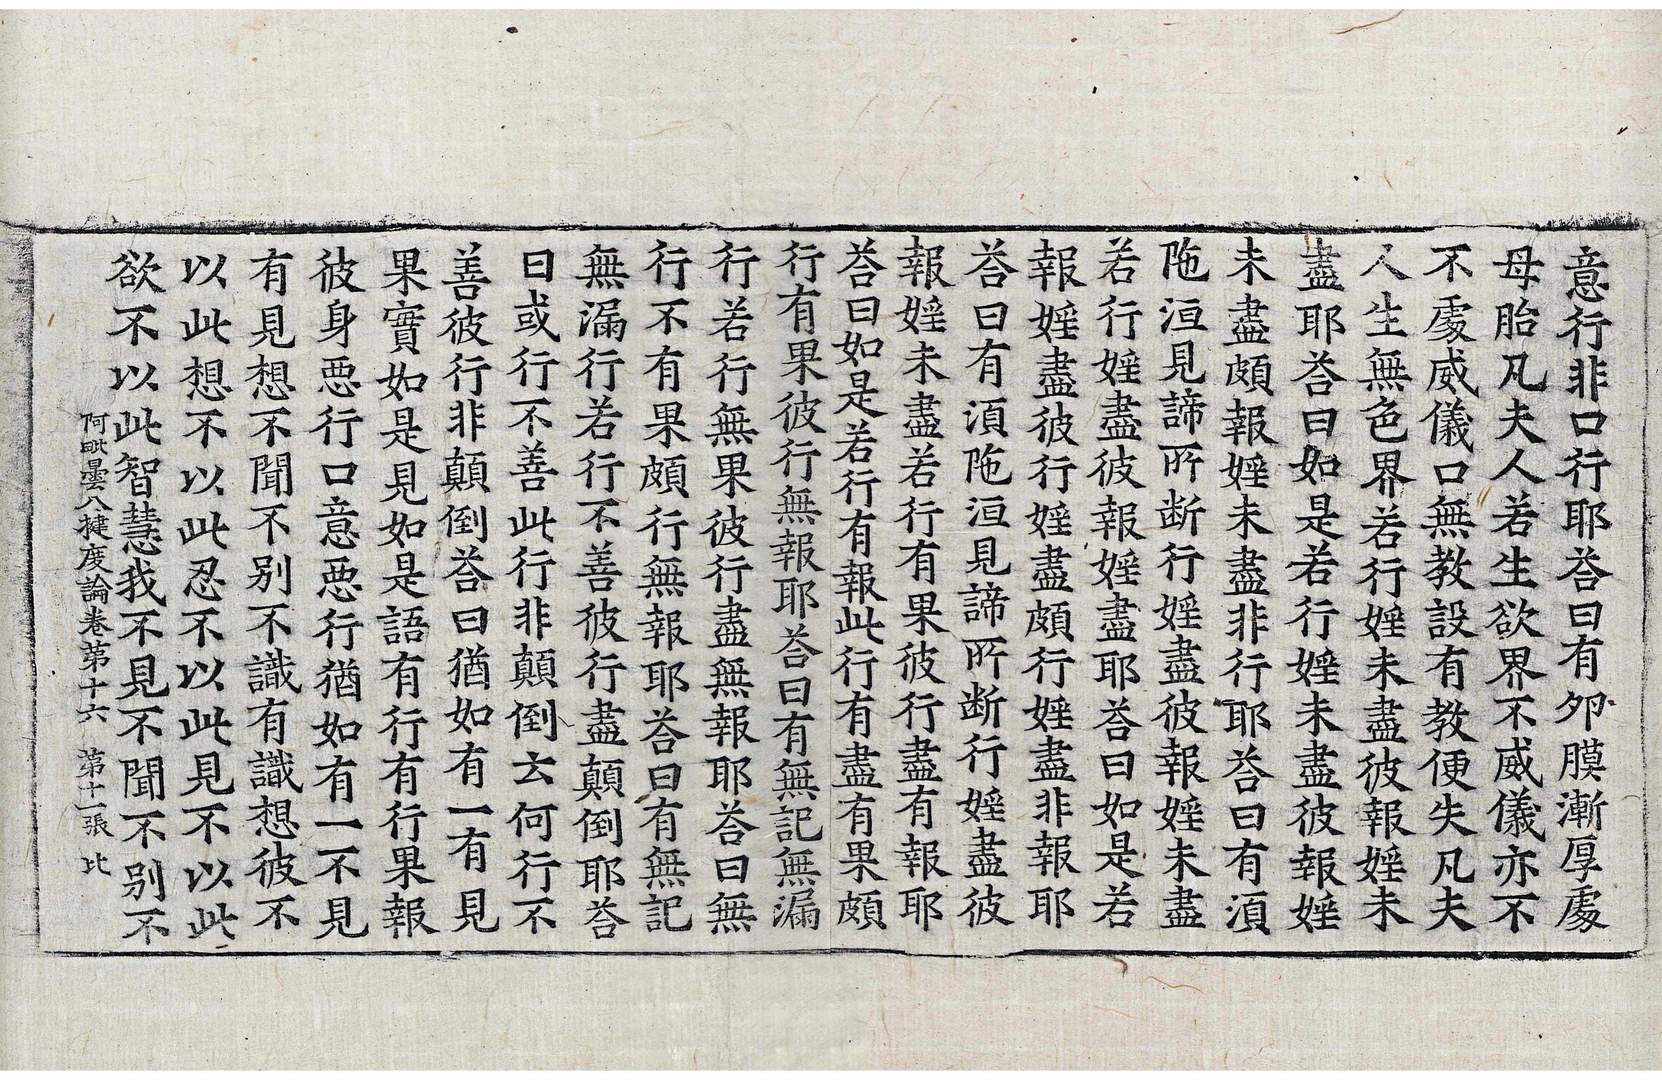 意行非口行耶荅曰有夘膜漸厚處
母胎凡夫人若生欲界不威儀亦不
不處威儀口無教設有教便失凡夫
人生無色界若行婬未盡彼報婬未
盡耶荅曰如是若行婬未盡彼報婬
未盡頗報婬未盡非行耶荅曰有湏
陁洹見諦所断行婬盡彼報婬未盡
若行婬盡彼報婬盡耶荅曰如是若
報婬盡彼行婬盡頗行婬盡非報耶
荅曰有湏陁洹見諦所断行婬盡彼
報婬未盡若行有果彼行盡有報耶
荅曰如是若行有報此行有盡有果頗
行有果彼行無報耶荅曰有無記無漏
行若行無果彼行盡無報耶荅曰無
行不有果頗行無報耶荅曰有無記
無漏行若行不善彼行盡顛倒耶荅
曰或行不善此行非顛倒云何行不
善彼行非顛倒荅曰猶如有一有見
果實如是見如是語有行有行果報
彼身悪行口意悪行猶如有一不見
有見想不聞不别不識有識想彼不
以此想不以此忍不以此見不以此
欲不以此智慧我不見不聞不别不
阿毗曇八揵度論卷第十六　第十一張　比